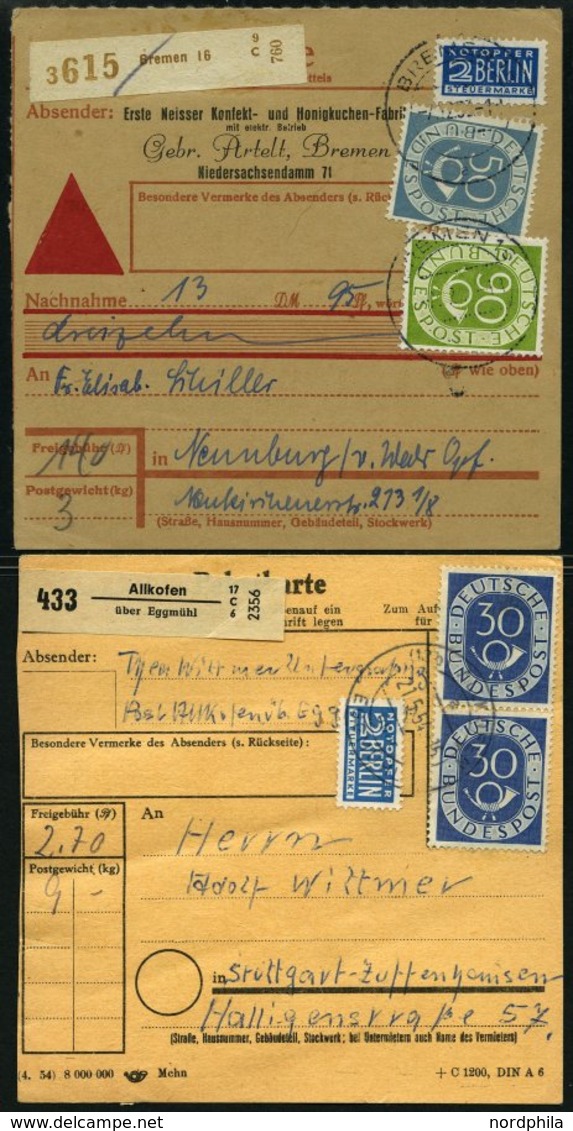 3615 Bremen 16 9 C 760
NOTOPFER
2 BERLIN
STEUERMARKE
Absender: Erste Neisser Konfekt- und Honigkuchen-Fabri
mit elektr. Betrieb
Gebr. Artelt, Bremen
Niedersachsendamm 71
50 DEUTSCHE BUNDESPOST
Besondere Vermerke des Absenders (s. Rück
90 DEUTSCHE BUNDESPOST
Nachnahme 13 DM 95 Pf, wör
dreizehn
An Fr. Elisab. Schiller wie oben)
Freigebühr 140
in Neunburg/v. Wald Opf.
Postgewicht (kg) 3
Neukirchenerstr. 213 1/8
(Straße, Hausnummer, Gebäudeteil, Stockwerk)
433 Allkofen über Eggmühl 17 C 6 2356
karte
enauf ein
rift legen
Zum Auf
für
DEUTSCHE BUNDESPOST 30
Absender:
Besondere Vermerke des Absenders (s. Rückseite):
NOTOPFER
2 BERLIN
STEUERMARKE
DEUTSCHE BUNDESPOST 30
Freigebühr 2.70
An Herrn
Postgewicht (kg) 9 -
Adolf Wittmer
in Stuttgart-Zuffenhausen
Halligenstraße 57.
(Straße, Hausnummer, Gebäudeteil, Stockwerk; bei Untermietern auch Name des Vermieters)
(4. 54) 8 000 000 Mchn + C 1200, DIN A 6
www.delcampe.net nordphila